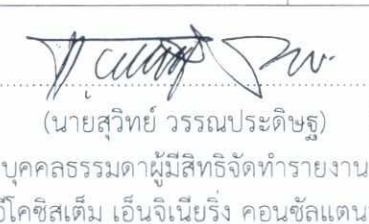 (นายสุวิทย์ วรรณประดิษฐ)
บุคคลธรรมดาผู้มีสิทธิจัดทำรายงาน
อีโคซิสเต็ม เอ็นจิเนียริ่ง คอนซัลแตน